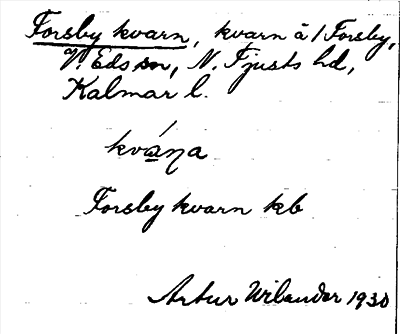 Forsby kvarn, kvarn å 1 Forsby,
V. Eds sn, N. Tjusts hd,
Kalmar l.
kváṇa
Forsby kvarn kb
Artur Wilander 1930